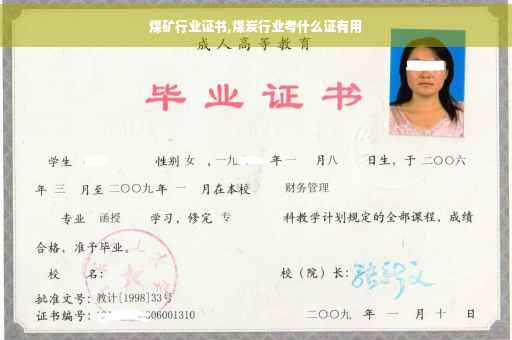 煤矿行业证书,煤炭行业考什么证有用
成人高等教育
毕业证书
学生 性别 女 ，一九 年 一 月 八 日生，于 二〇〇六
年 三 月至 二〇〇九 年 一 月在本校 财务管理
专业 函授 学习，修完 专 科教学计划规定的全部课程，成绩
合格，准予毕业。
校 名： 校（院）长：
批准文号：教计[1998]33号
证书编号： 06001310 二〇〇九 年 一 月 十 日